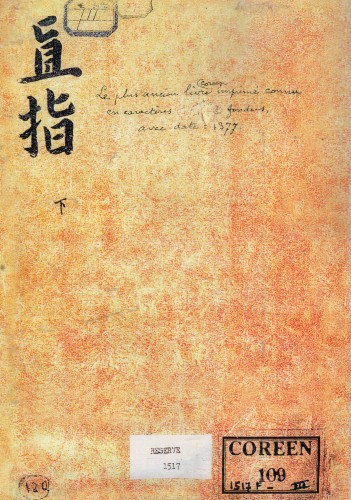 直指
下
coréen
Le plus ancien livre imprimé connu
en caractères fondus,
avec date : 1377
RESERVE
1517
COREEN
109
1517 F - III